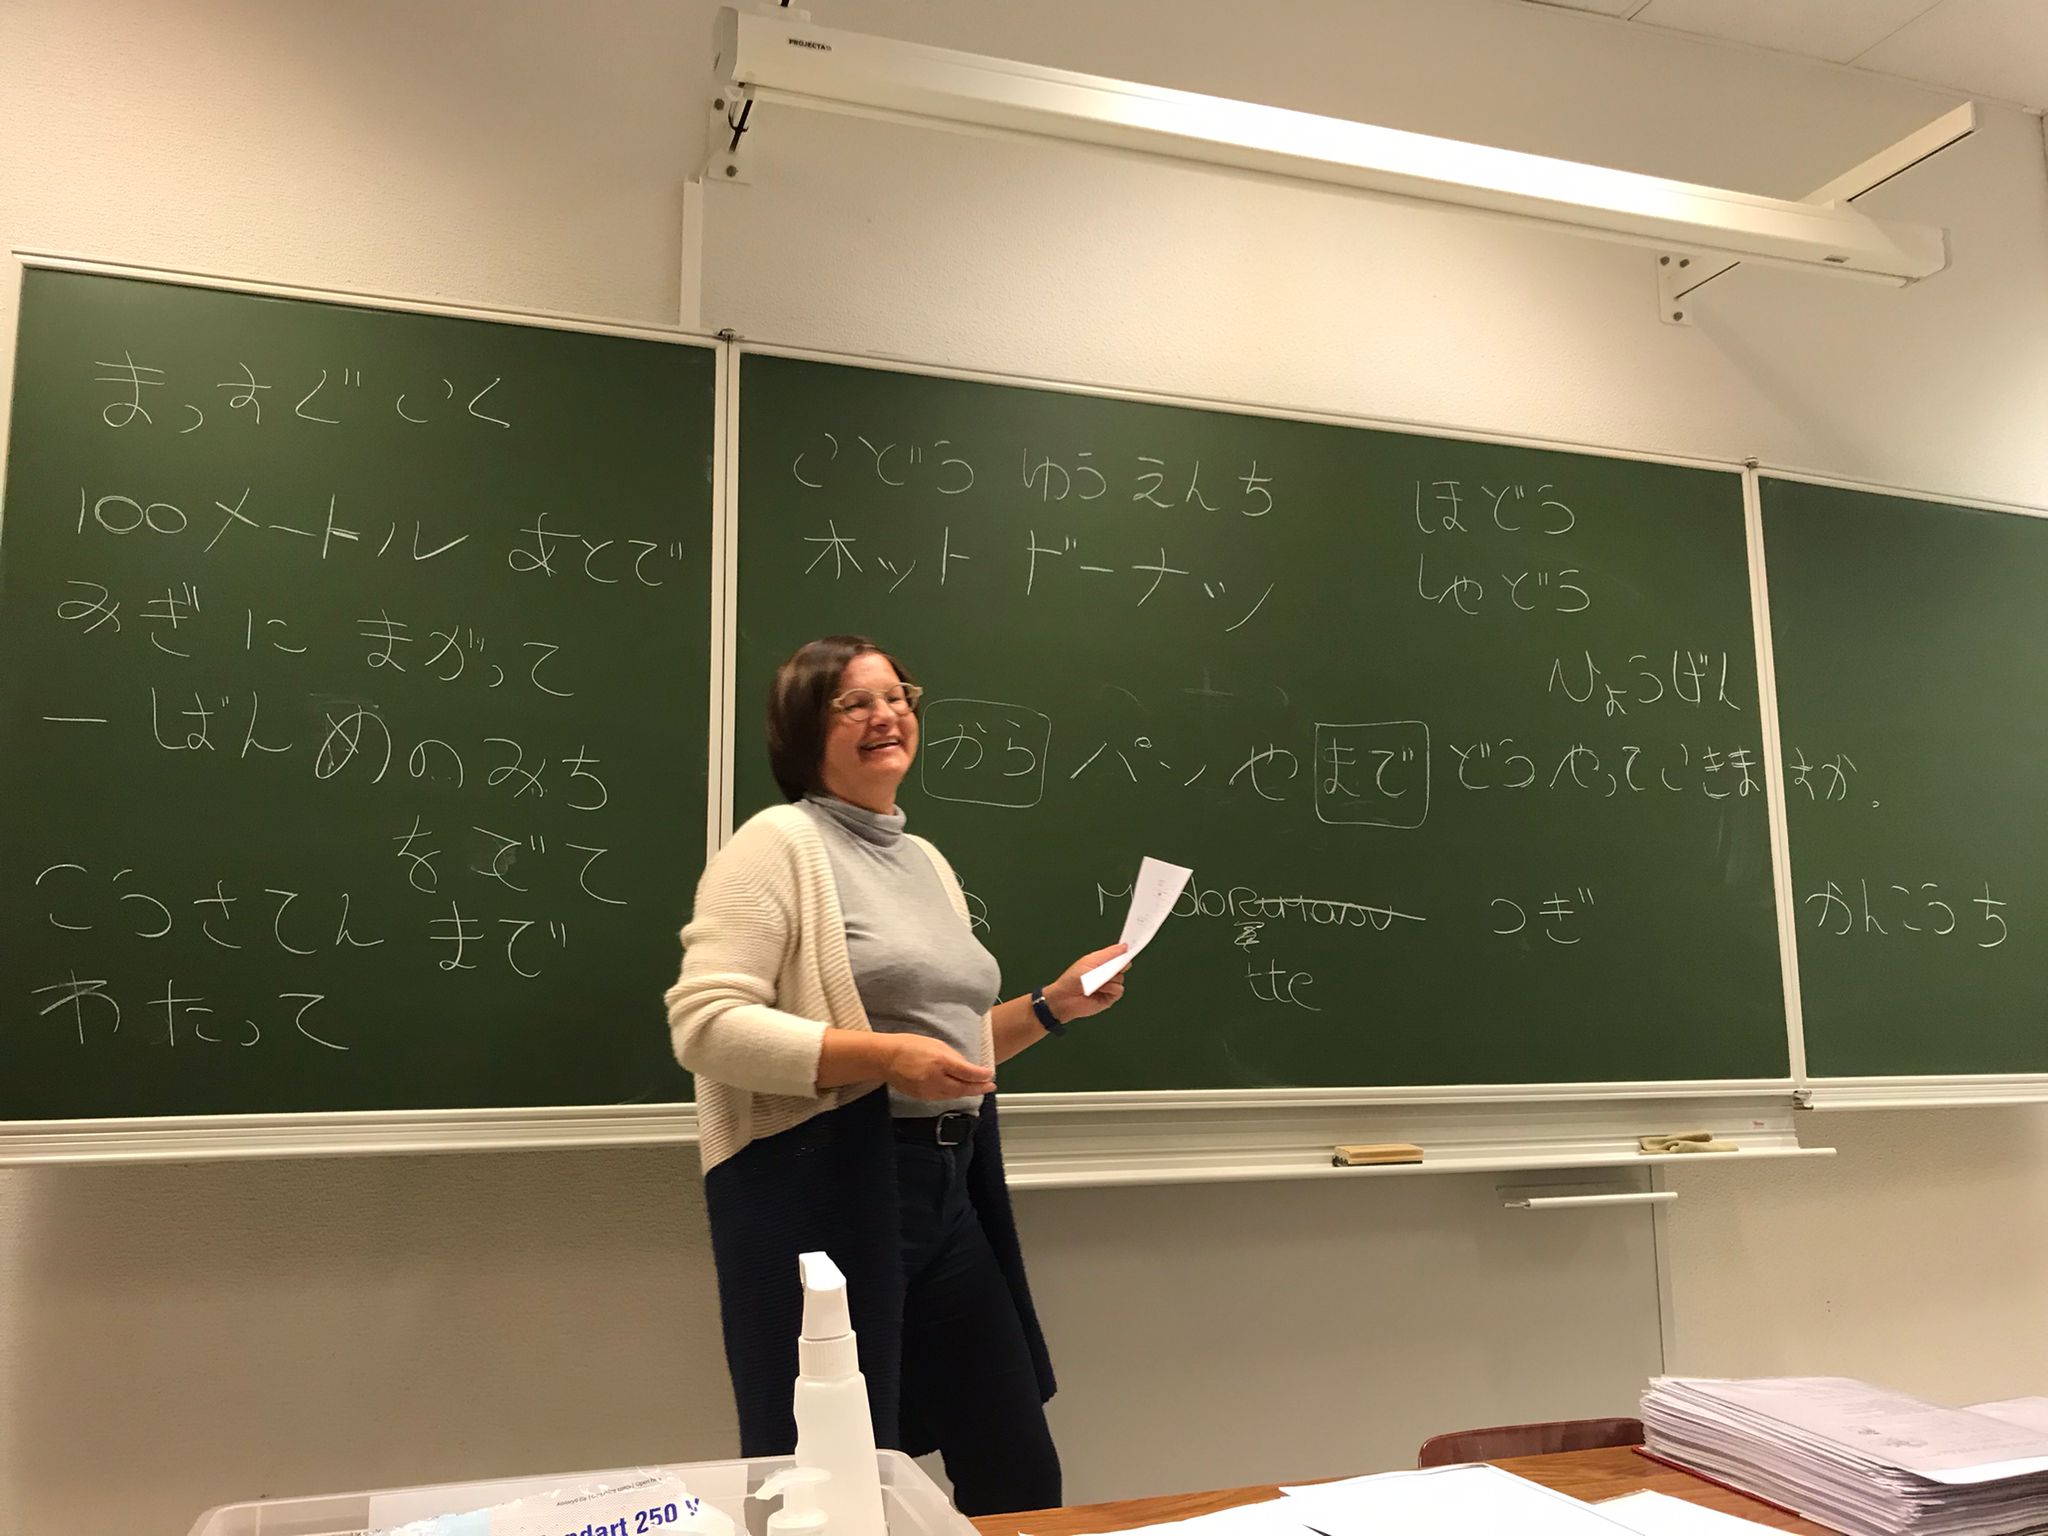 PROJECTA
まっすぐ いく
100メートル あとで
みぎに まがって
一ばんめのみち
をでて
こうさてん まで
わたって
こどう ゆうえんち
ホット ドーナッツ
ほどう
しゃどう
ひょうげん
から パンや まで どうやっていきますか。
つぎ
tte
かんこうち
ndart 250